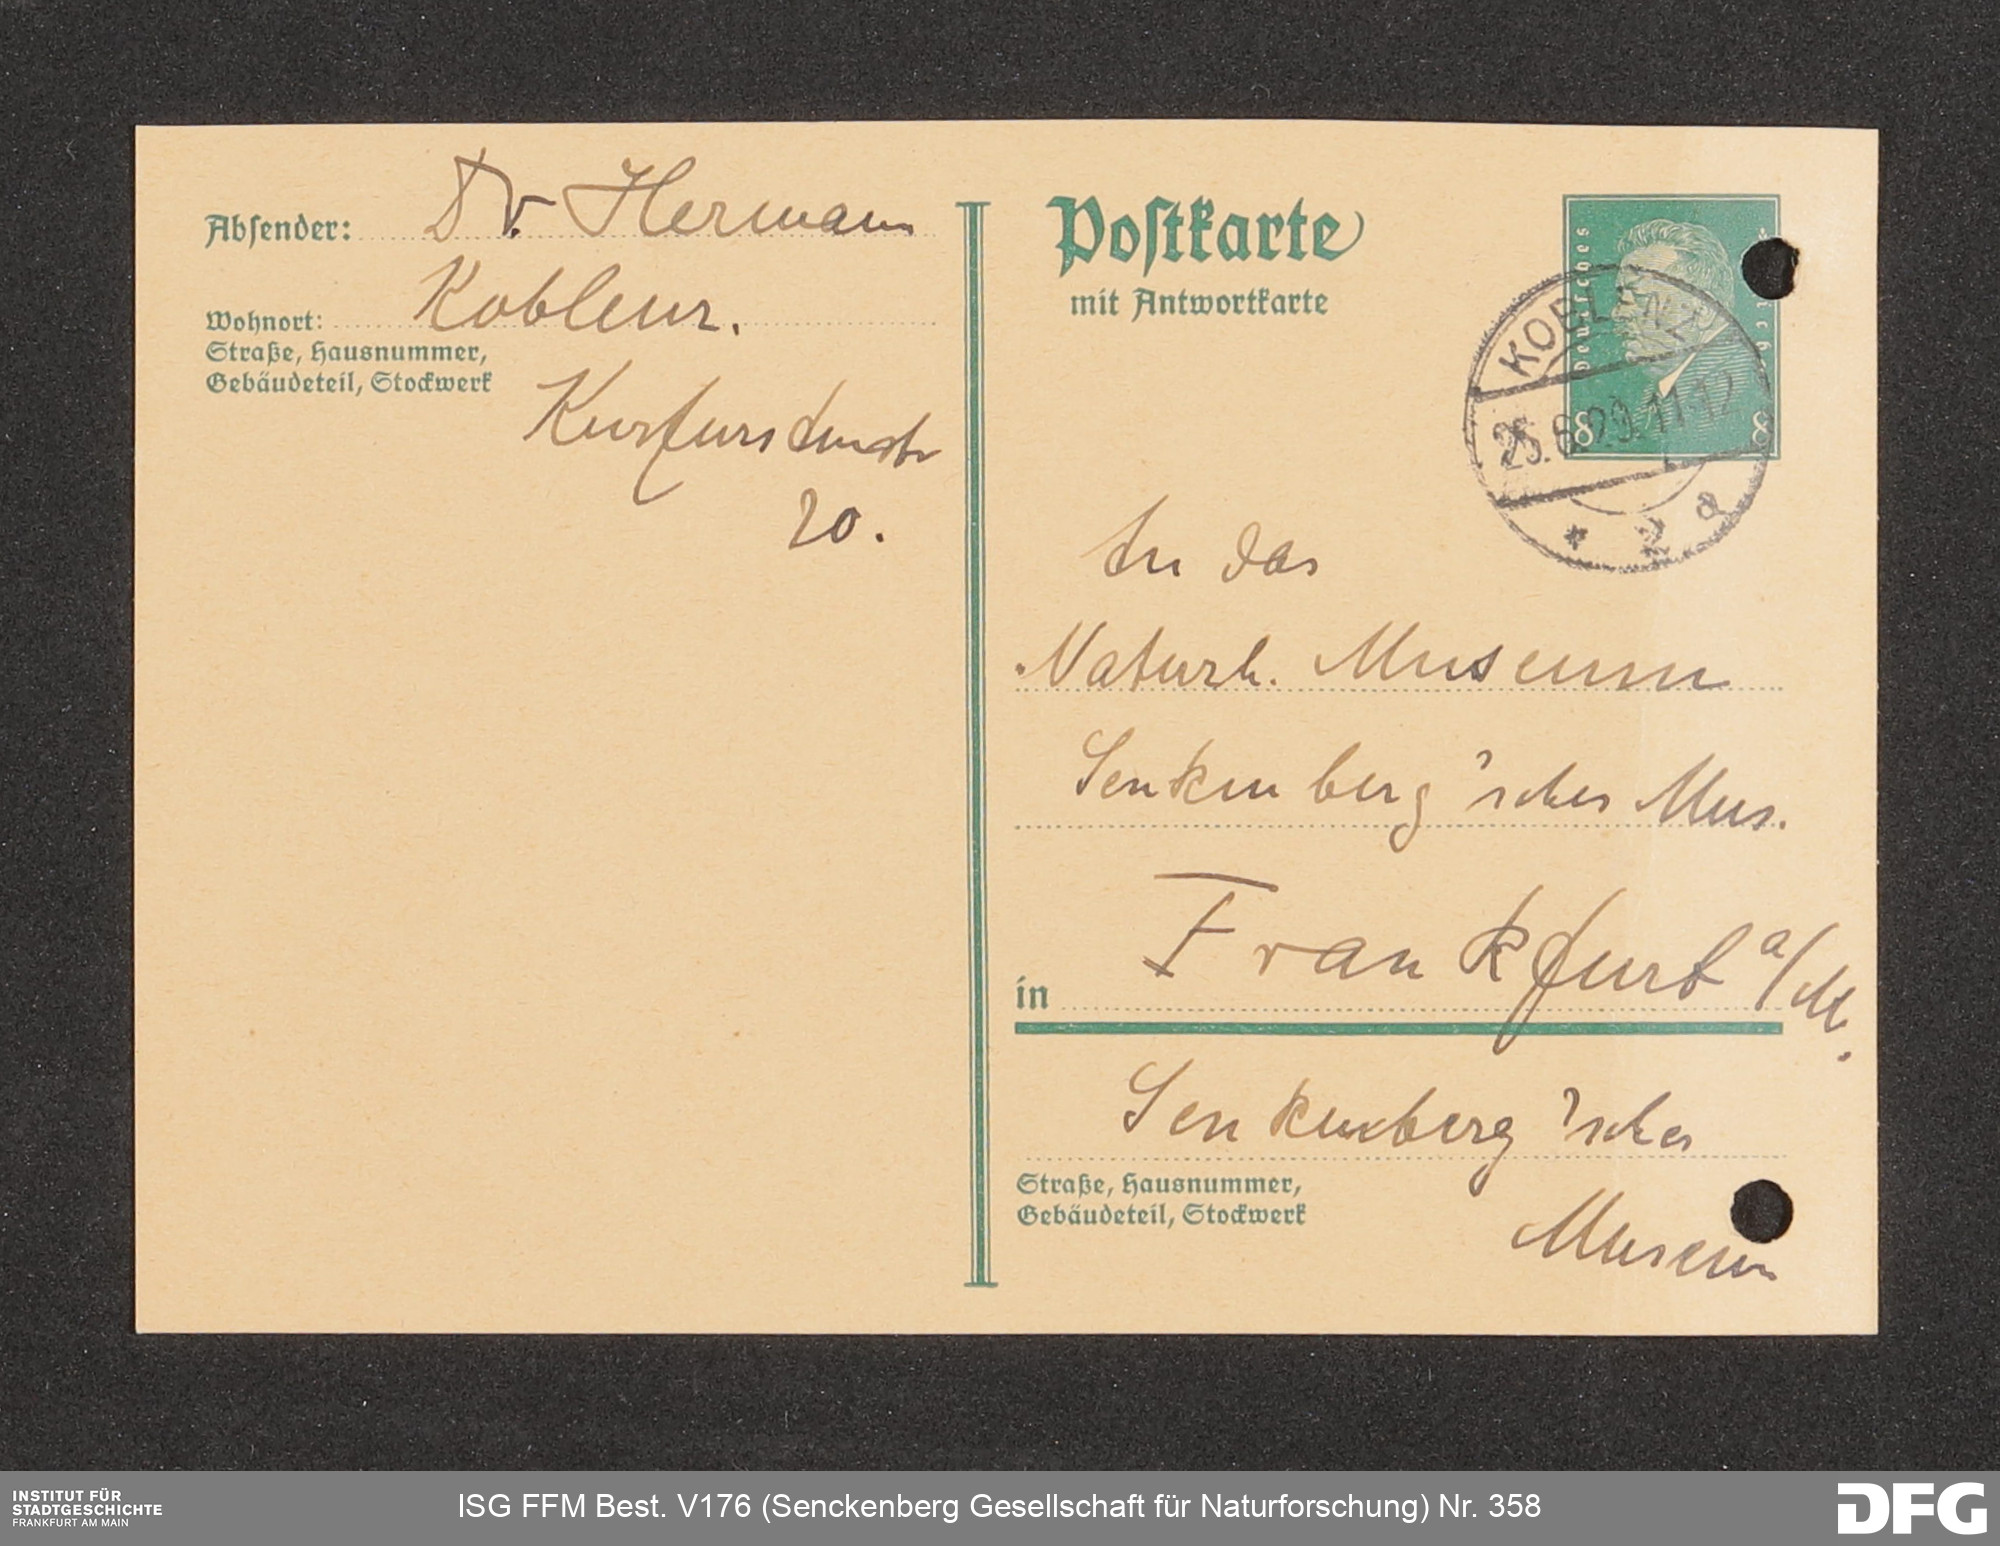 Absender: Dr. Hermann
Wohnort: Koblenz.
Straße, Hausnummer,
Gebäudeteil, Stockwerk
Kurfürstenstr
20.
Postkarte
mit Antwortkarte
Deutsches Reich
8 8
KOBLENZ
25.6.29.11-12
* 2 a
An das
Naturh. Museum
Senkenberg'sches Mus.
in Frankfurt a/M.
Senkenberg'sches
Straße, Hausnummer,
Gebäudeteil, Stockwerk
Museum
INSTITUT FÜR
STADTGESCHICHTE
FRANKFURT AM MAIN
ISG FFM Best. V176 (Senckenberg Gesellschaft für Naturforschung) Nr. 358
DFG